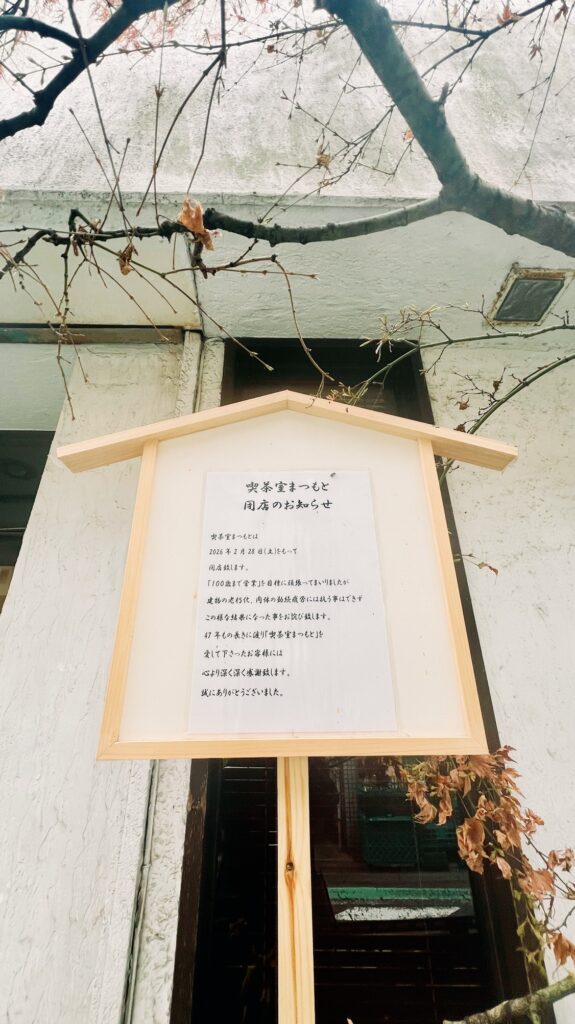 喫茶室まつもと
閉店のお知らせ
喫茶室まつもとは
2026年2月28日(土)をもって
閉店致します。
「100歳まで営業」を目標に頑張ってまいりましたが
建物の老朽化、肉体の勤続疲労には抗う事はできず
この様な結果になった事をお詫び致します。
47年もの長きに渡り「喫茶室まつもと」を
愛して下さったお客様には
心より深く深く感謝致します。
誠にありがとうございました。